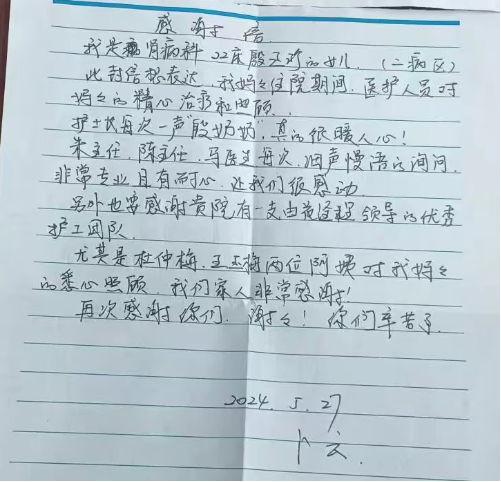 感谢信
我是肾病科22床殷玉珍的女儿.(二病区)
此封信想表达,我妈妈住院期间,医护人员对
妈妈的精心治疗和照顾.
护士长每次一声"殷奶奶",真的很暖人心!
朱主任.陈主任.马医生每次,细声慢语的询问,
非常专业且有耐心,让我们很感动.
另外也要感谢贵院,有一支由领导的优秀
护工团队.
尤其是杜仲梅.王玉梅两位阿姨对我妈妈
的悉心照顾,我们家人非常感谢!
再次感谢你们.谢谢!你们辛苦了.
2024.5.27
卜云.